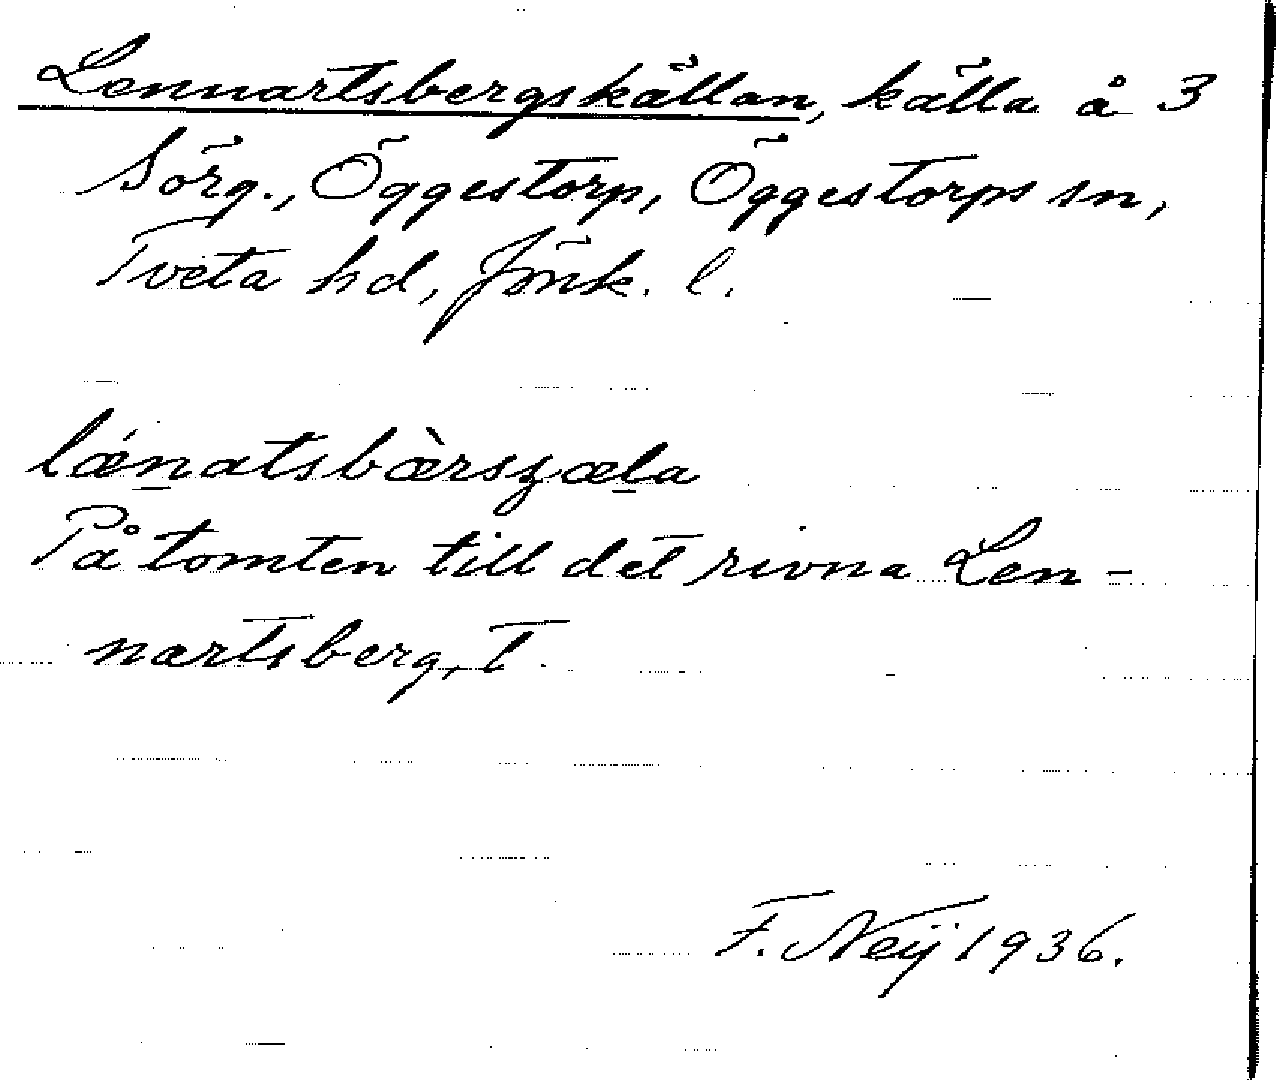 Lennartsbergskällan, källa å 3
Sörg., Öggestorp, Öggestorps sn,
Tveta hd, Jönk. l.
lǽn̲atsbæ̀rsʒæl̲a
På tomten till det rivna Len-
nartsberg, T.
F. Neij 1936.